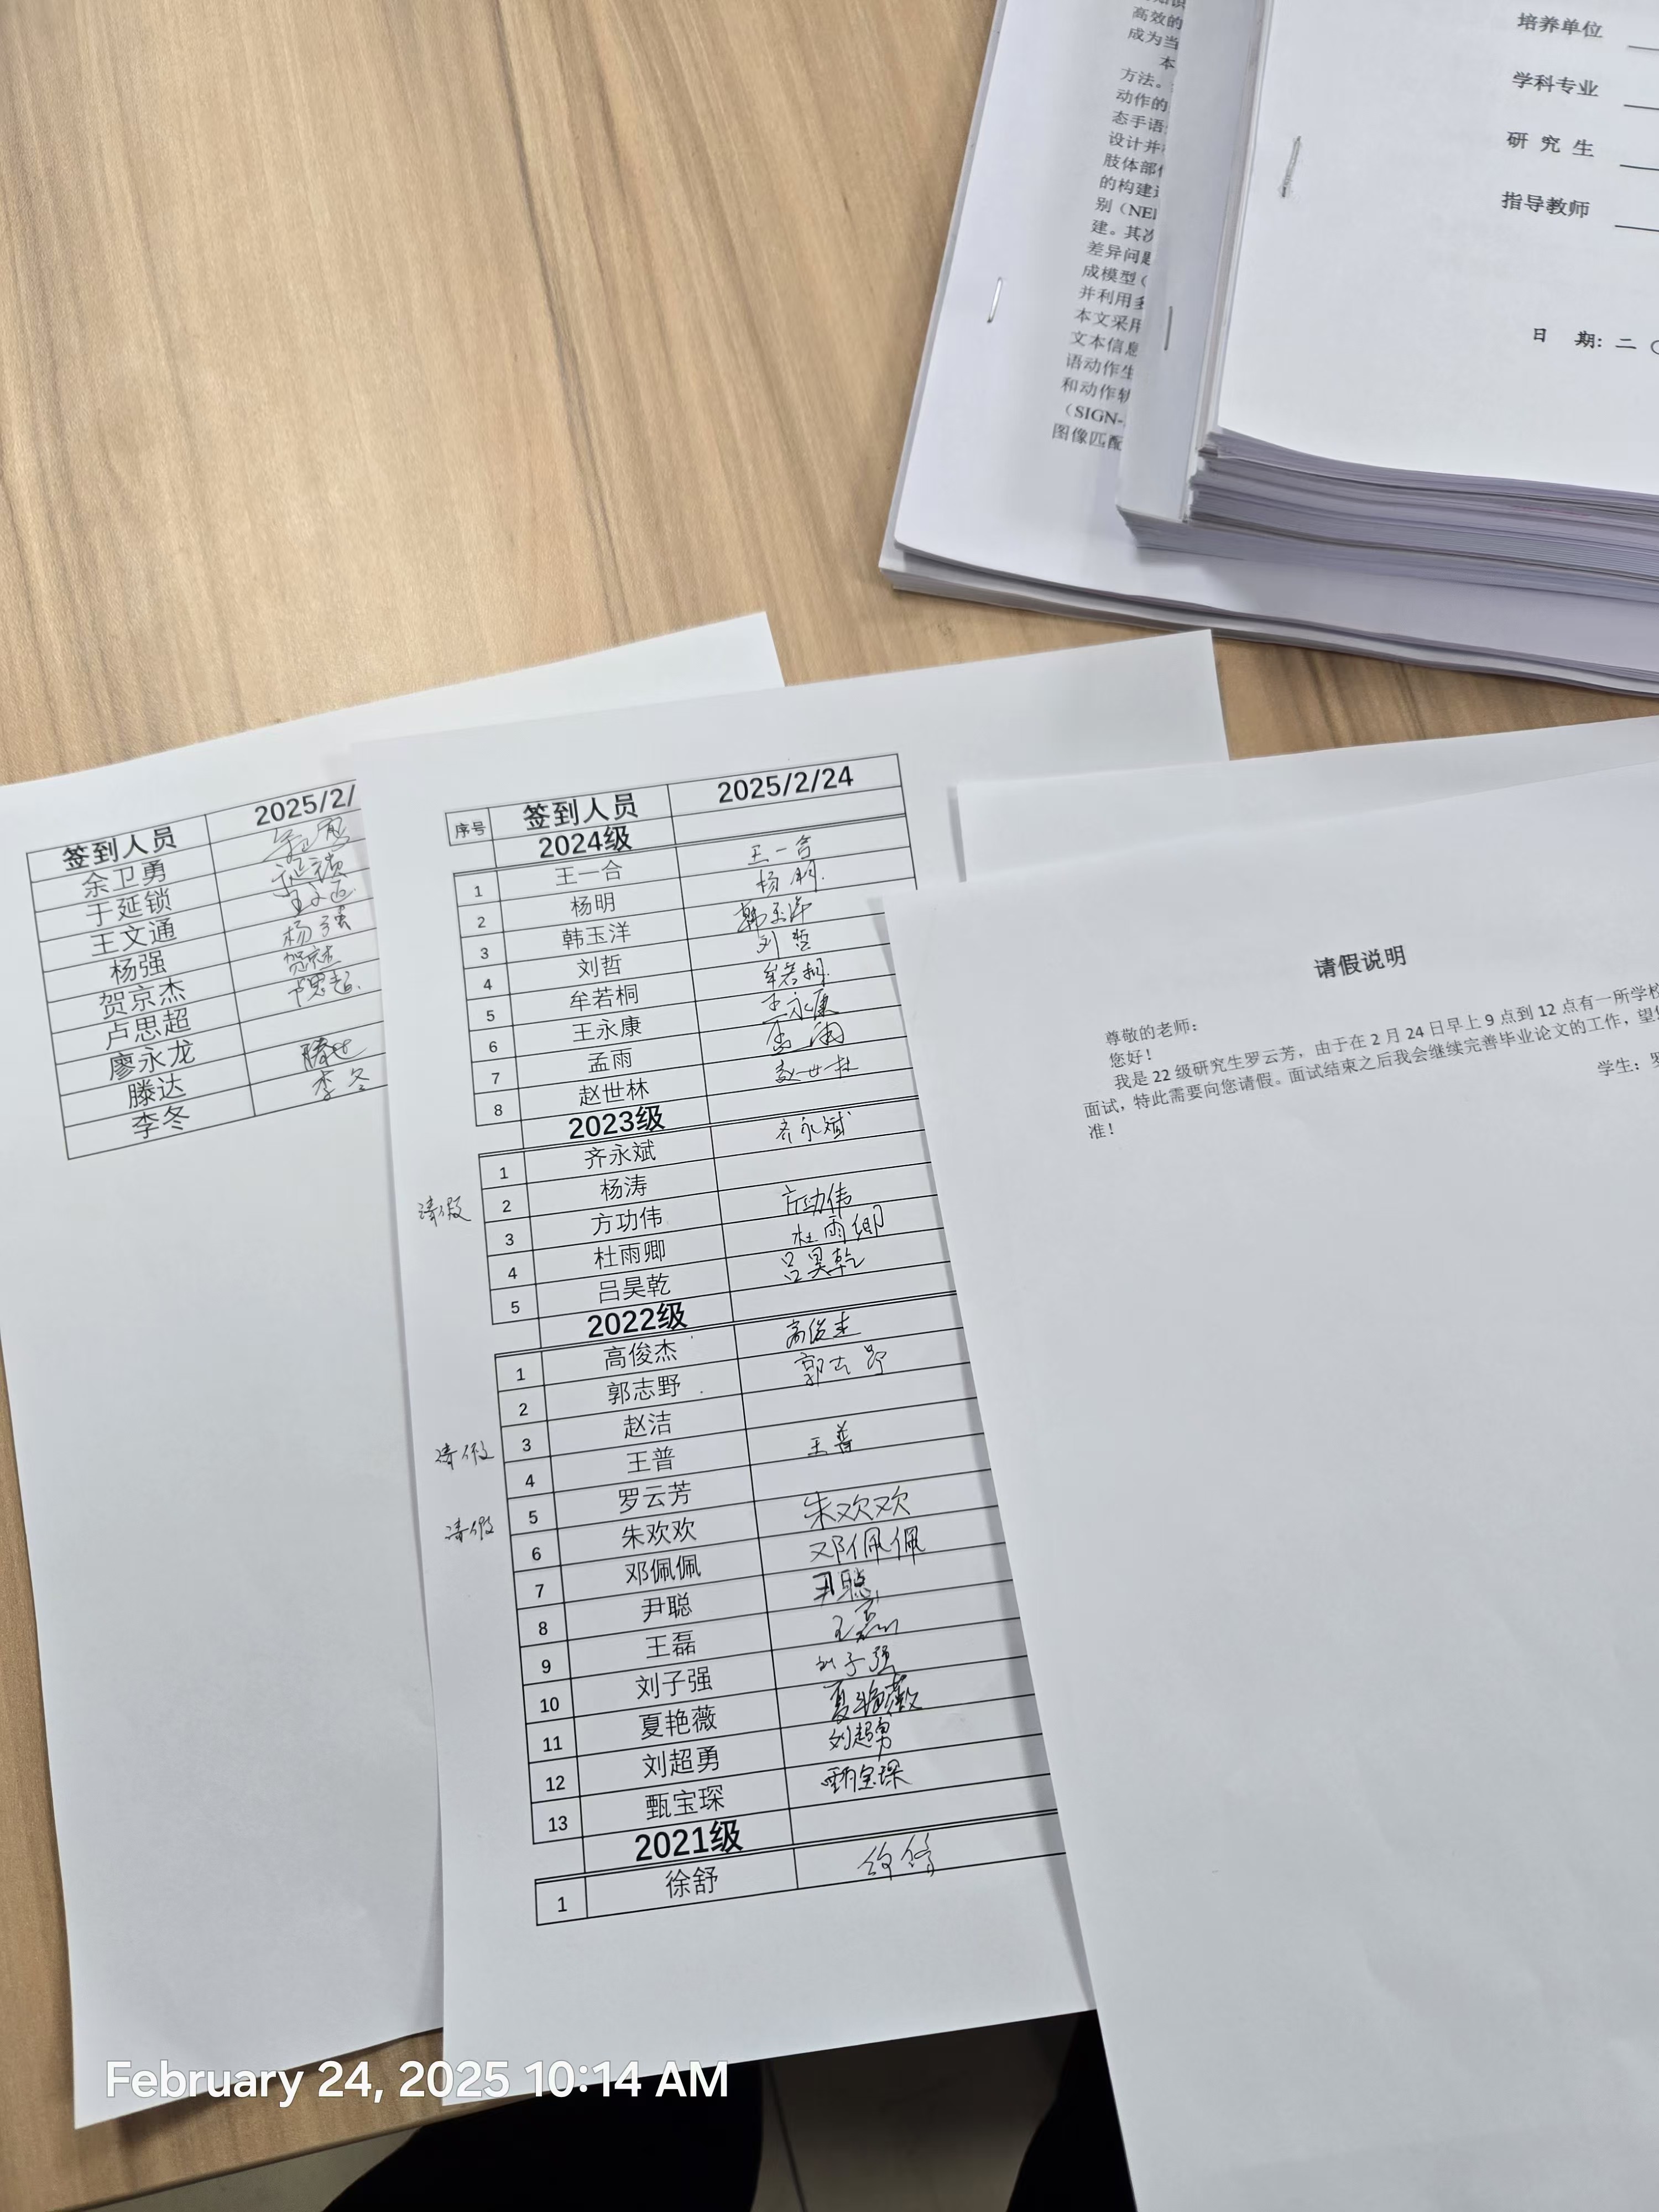 高效的
成为当
本
方法。
动作的
态手语
设计并
肢体部
的构建
别（NE
建。其次
差异问题
成模型（
并利用多
本文采用
文本信息
语动作生
和动作轨
（SIGN-
图像匹配
培养单位
学科专业
研 究 生
指导教师
日 期：二 〇
签到人员 2025/2/
余卫勇
于延锁
王文通
杨强 杨强
贺京杰 贺京杰
卢思超 卢思超
廖永龙
滕达 滕达
李冬 李冬
序号 签到人员 2025/2/24
2024级
1 王一合 王一合
2 杨明 杨明
3 韩玉洋 韩玉洋
4 刘哲 刘哲
5 牟若桐 牟若桐
6 王永康 王永康
7 孟雨 孟雨
8 赵世林 赵世林
2023级
1 齐永斌 齐永斌
请假 2 杨涛
3 方功伟 方功伟
4 杜雨卿 杜雨卿
5 吕昊乾 吕昊乾
2022级
1 高俊杰 高俊杰
2 郭志野 郭志野
请假 3 赵洁
4 王普 王普
请假 5 罗云芳
6 朱欢欢 朱欢欢
7 邓佩佩 邓佩佩
8 尹聪 尹聪
9 王磊 王磊
10 刘子强 刘子强
11 夏艳薇 夏艳薇
12 刘超勇 刘超勇
13 甄宝琛 甄宝琛
2021级
1 徐舒 徐舒
请假说明
尊敬的老师：
您好！
我是 22 级研究生罗云芳，由于在 2 月 24 日早上 9 点到 12 点有一所学校
面试，特此需要向您请假。面试结束之后我会继续完善毕业论文的工作，望您
准！
学生：罗
February 24, 2025 10:14 AM